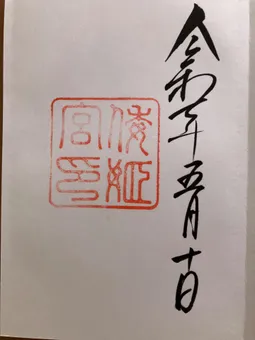 令和七年五月十日
倭姫宮印